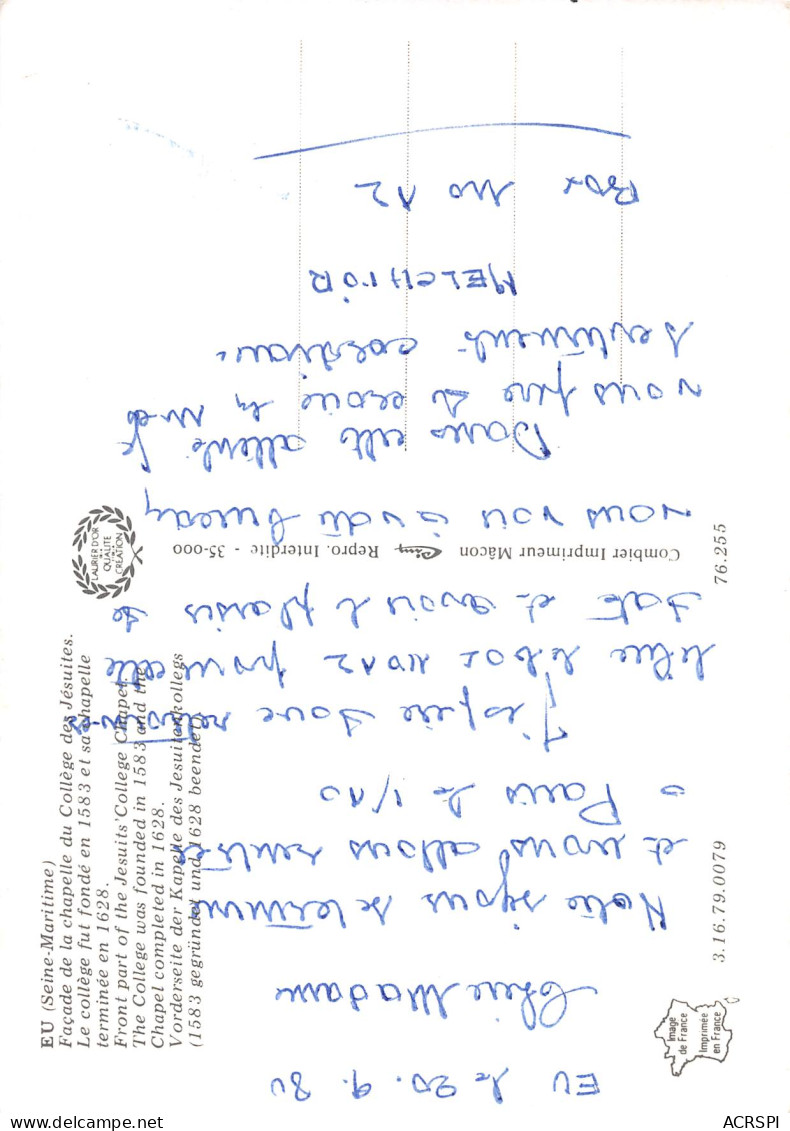 EU le 20.9.80
Chère Madame
Notre séjour se termine
et nous allons rentrer
à Paris le 1/10
J'espère donc retrouver
libre le box no 12 pour cette
date et avoir le plaisir de
vous voir à votre bureau
Dans cette attente je
vous prie de croire à mes
sentiments cordiaux.
MELCHIOR
Box no 12
EU (Seine-Maritime)
Façade de la chapelle du Collège des Jésuites.
Le collège fut fondé en 1583 et sa chapelle
terminée en 1628.
Front part of the Jesuits'College Chapel.
The College was founded in 1583 and the
Chapel completed in 1628.
Vorderseite der Kapelle des Jesuitenkollegs
(1583 gegründet und 1628 beendet).
LAURIER D'OR
QUALITE
CRÉATION
Combier Imprimeur Mâcon Cim Repro. Interdite - 35-000
76.255
3.16.79.0079
Image
de France
Imprimée
en France
ACRSPI